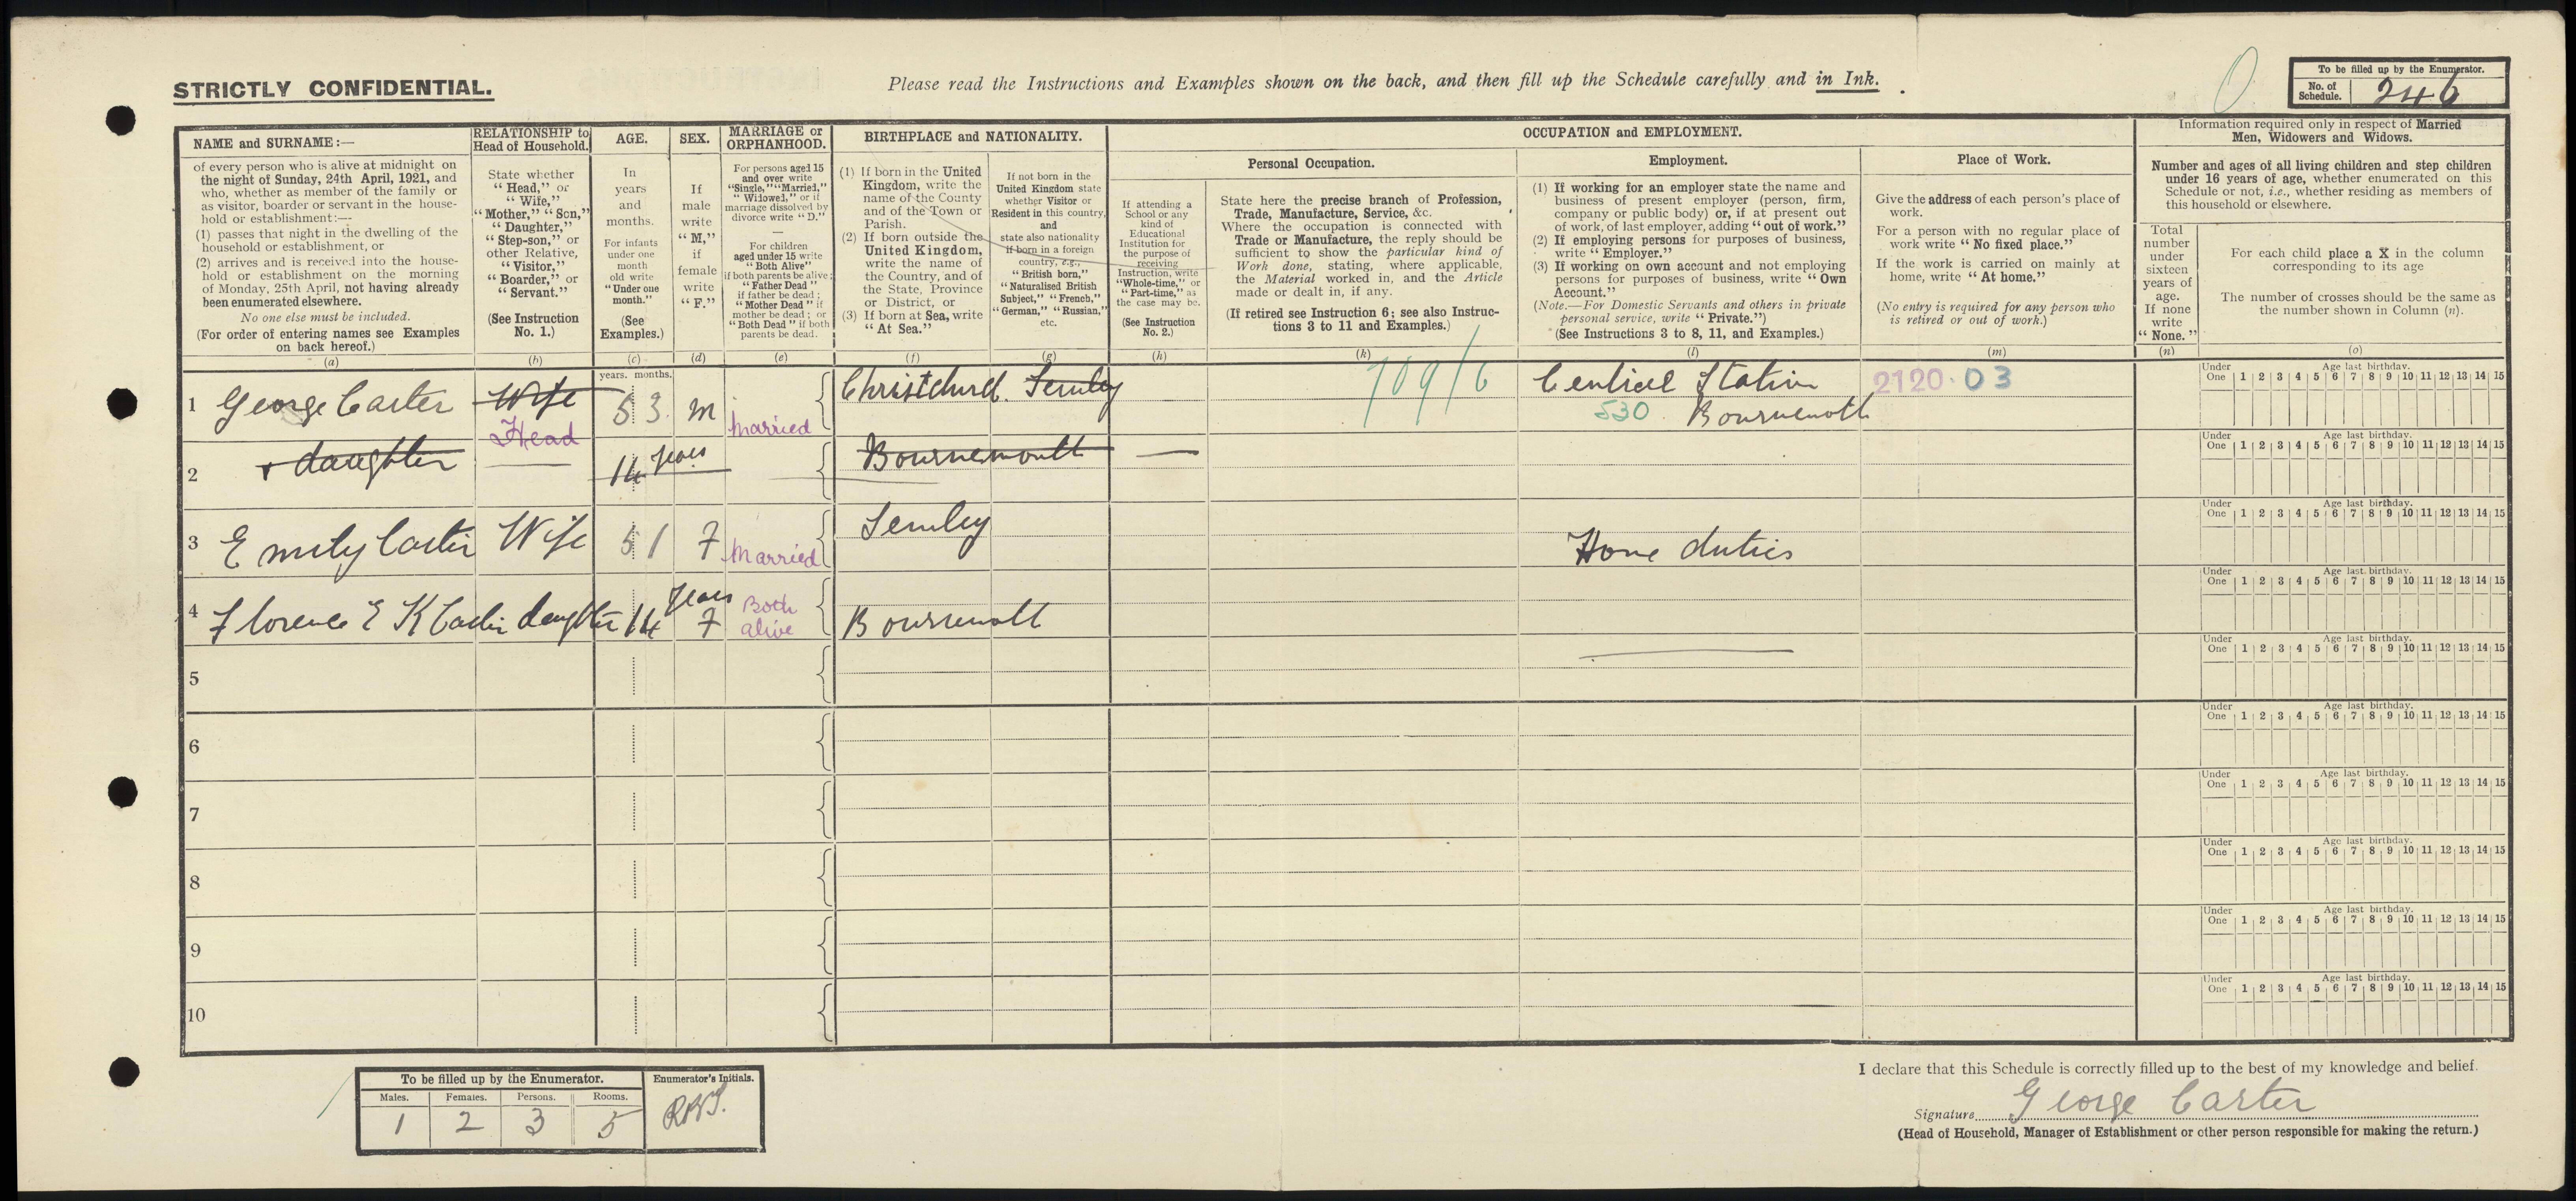 STRICTLY CONFIDENTIAL.
Please read the Instructions and Examples shown on the back, and then fill up the Schedule carefully and in Ink.
To be filled up by the Enumerator.
No. of Schedule. 246
NAME and SURNAME:—
of every person who is alive at midnight on
the night of Sunday, 24th April, 1921, and
who, whether as member of the family or
as visitor, boarder or servant in the house-
hold or establishment:—
(1) passes that night in the dwelling of the
household or establishment, or
(2) arrives and is received into the house-
hold or establishment on the morning
of Monday, 25th April, not having already
been enumerated elsewhere.
No one else must be included.
(For order of entering names see Examples
on back hereof.)
(a)
RELATIONSHIP to
Head of Household.
State whether
"Head," or
"Wife,"
"Mother," "Son,"
"Daughter,"
"Step-son," or
other Relative,
"Visitor,"
"Boarder," or
"Servant."
(See Instruction
No. 1.)
(b)
AGE.
In
years
and
months.
For infants
under one
month
old write
"Under one
month."
(See
Examples.)
(c)
SEX.
If
male
write
"M,"
if
female
write
"F."
(d)
MARRIAGE or
ORPHANHOOD.
For persons aged 15
and over write
"Single," "Married,"
"Widowed," or if
marriage dissolved by
divorce write "D."
—
For children
aged under 15 write
"Both Alive"
if both parents be alive;
"Father Dead"
if father be dead;
"Mother Dead" if
mother be dead; or
"Both Dead" if both
parents be dead.
(e)
BIRTHPLACE and NATIONALITY.
(1) If born in the United
Kingdom, write the
name of the County
and of the Town or
Parish.
(2) If born outside the
United Kingdom,
write the name of
the Country, and of
the State, Province
or District, or
(3) If born at Sea, write
"At Sea."
(f)
If not born in the
United Kingdom state
whether Visitor or
Resident in this country,
and
state also nationality
if born in a foreign
country, e.g.,
"British born,"
"Naturalised British
Subject," "French,"
"German," "Russian,"
etc.
(g)
OCCUPATION and EMPLOYMENT.
If attending a
School or any
kind of
Educational
Institution for
the purpose of
receiving
Instruction, write
"Whole-time," or
"Part-time," as
the case may be.
(See Instruction
No. 2.)
(h)
Personal Occupation.
State here the precise branch of Profession,
Trade, Manufacture, Service, &c.
Where the occupation is connected with
Trade or Manufacture, the reply should be
sufficient to show the particular kind of
Work done, stating, where applicable,
the Material worked in, and the Article
made or dealt in, if any.
(If retired see Instruction 6; see also Instruc-
tions 3 to 11 and Examples.)
(k)
Employment.
(1) If working for an employer state the name and
business of present employer (person, firm,
company or public body) or, if at present out
of work, of last employer, adding "out of work."
(2) If employing persons for purposes of business,
write "Employer."
(3) If working on own account and not employing
persons for purposes of business, write "Own
Account."
(Note.—For Domestic Servants and others in private
personal service, write "Private.")
(See Instructions 3 to 8, 11, and Examples.)
(l)
Place of Work.
Give the address of each person's place of
work.
For a person with no regular place of
work write "No fixed place."
If the work is carried on mainly at
home, write "At home."
(No entry is required for any person who
is retired or out of work.)
(m)
Information required only in respect of Married
Men, Widowers and Widows.
Number and ages of all living children and step children
under 16 years of age, whether enumerated on this
Schedule or not, i.e., whether residing as members of
this household or elsewhere.
Total
number
under
sixteen
years of
age.
If none
write
"None."
(n)
For each child place a X in the column
corresponding to its age
The number of crosses should be the same as
the number shown in Column (n).
(o)
years. months.
1 George Carter Wife Head 53 M Married Christchurch. Semley 709/6 Central Station 530 Bournemouth 2120.03
Under One Age last birthday. 1 2 3 4 5 6 7 8 9 10 11 12 13 14 15
2 daughter 14 years Bournemouth —
Under One Age last birthday. 1 2 3 4 5 6 7 8 9 10 11 12 13 14 15
3 Emily Carter Wife 51 F Married Semley Home duties
Under One Age last birthday. 1 2 3 4 5 6 7 8 9 10 11 12 13 14 15
4 Florence E K Carter daughter 14 years F Both alive Bournemouth
Under One Age last birthday. 1 2 3 4 5 6 7 8 9 10 11 12 13 14 15
5
Under One Age last birthday. 1 2 3 4 5 6 7 8 9 10 11 12 13 14 15
6
Under One Age last birthday. 1 2 3 4 5 6 7 8 9 10 11 12 13 14 15
7
Under One Age last birthday. 1 2 3 4 5 6 7 8 9 10 11 12 13 14 15
8
Under One Age last birthday. 1 2 3 4 5 6 7 8 9 10 11 12 13 14 15
9
Under One Age last birthday. 1 2 3 4 5 6 7 8 9 10 11 12 13 14 15
10
Under One Age last birthday. 1 2 3 4 5 6 7 8 9 10 11 12 13 14 15
To be filled up by the Enumerator.
Males. Females. Persons. Rooms.
1 2 3 5
Enumerator's Initials.
I declare that this Schedule is correctly filled up to the best of my knowledge and belief.
Signature George Carter
(Head of Household, Manager of Establishment or other person responsible for making the return.)